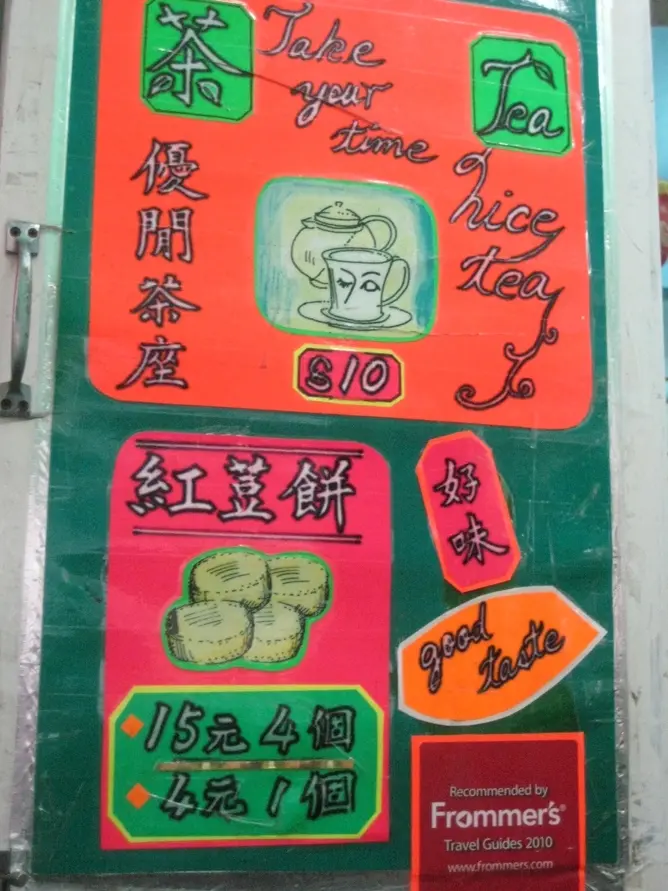 茶
Take
your
time
Tea
nice
tea
優閒茶座
$10
紅荳餅
15元4個
4元1個
好味
good
taste
Recommended by
Frommer's®
Travel Guides 2010
www.frommers.com